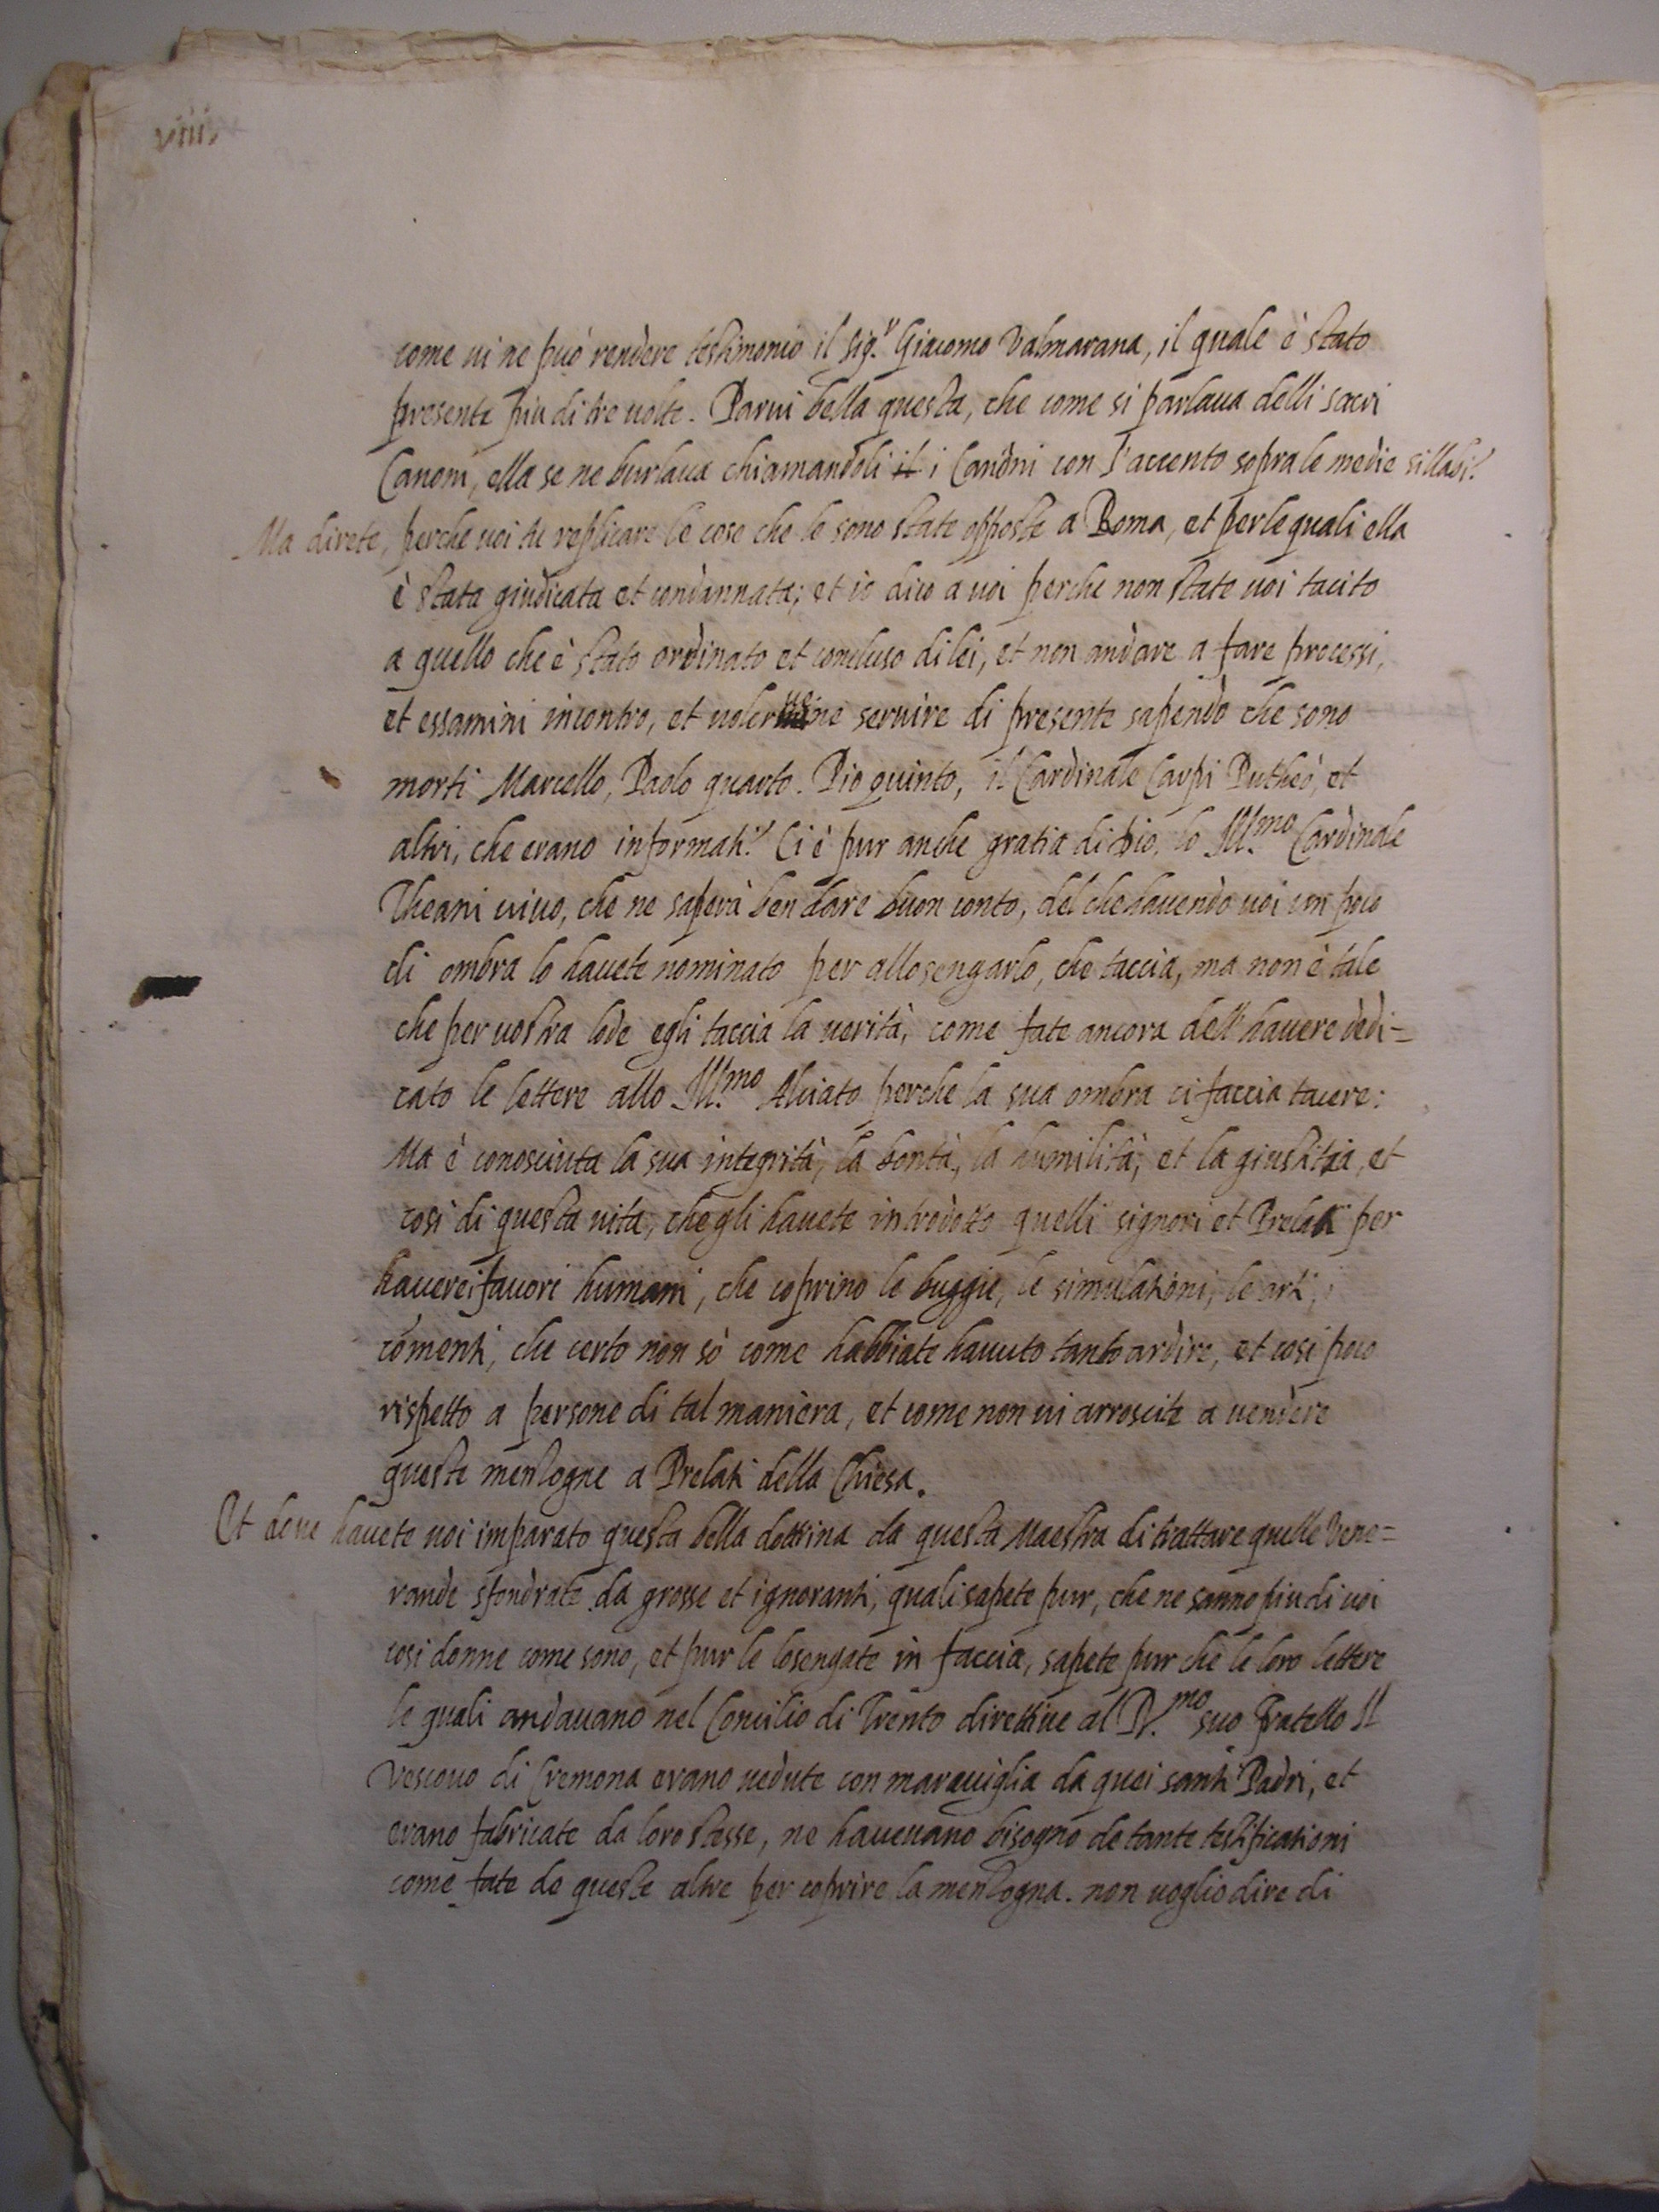 viiii
come ui ne può rendere testimonio il sig.r Giacomo Valmarana, il quale è stato
presente piu di tre uolte. Parui bella questa, che come si parlaua delli sacri
Canoni, ella se ne burlaua chiamandoli il i Canòni con l'accento sopra le medie sillabi?
Ma direte, perche uoi tu replicare le cose che le sono state opposte a Roma, et per le quali ella
è stata giudicata et condannata; et io dico a uoi perche non state uoi tacito
a quello che è stato ordinato et concluso di lei, et non andare a fare processi,
et essamini incontro, et uoleruene seruire di presente sapendo che sono
morti Marcello, Paolo quarto. Pio quinto, il Cardinale Carpi Putheo, et
altri, che erano informati? Ci è pur anche gratia di Dio, lo Ill.mo Cardinale
Theani uiuo, che ne saperà ben dare buon conto, del che hauendo uoi un poco
di ombra lo hauete nominato per allosengarlo, che taccia, ma non è tale
che per uostra lode egli taccia la uerità, come fate ancora dell' hauere dedi=
cato le lettere allo Ill.mo Alciato perche la sua ombra ci faccia tacere:
Ma è conosciuta la sua integrità, la bontà, la humilità, et la giustitia, et
cosi di questa uita, che gli hauete introdotto quelli signori et Prelati per
hauere i fauori humani, che coprino le buggie, le simulationi, le arti, i
comenti, che certo non sò come habbiate hauuto tanto ardire, et cosi poco
rispetto a persone di tal maniera, et come non ui arroscite a uendere
queste menzogne a Prelati della Chiesa.
Et doue hauete uoi imparato questa bella dottrina da questa Maestra di trattare quelle Vene=
rande sfondrate da grosse et ignoranti, quali sapete pur, che ne sanno piu di uoi
cosi donne come sono, et pur le losengate in faccia, sapete pur che le loro lettere
le quali andauano nel Concilio di Trento direttiue al R.mo suo fratello Il
Vescouo di Cremona erano uedute con marauiglia da quei santi Padri, et
erano fabricate da loro stesse, ne haueuano bisogno de tante testificationi
come fate de queste altre per coprire la menzogna. non uoglio dire di